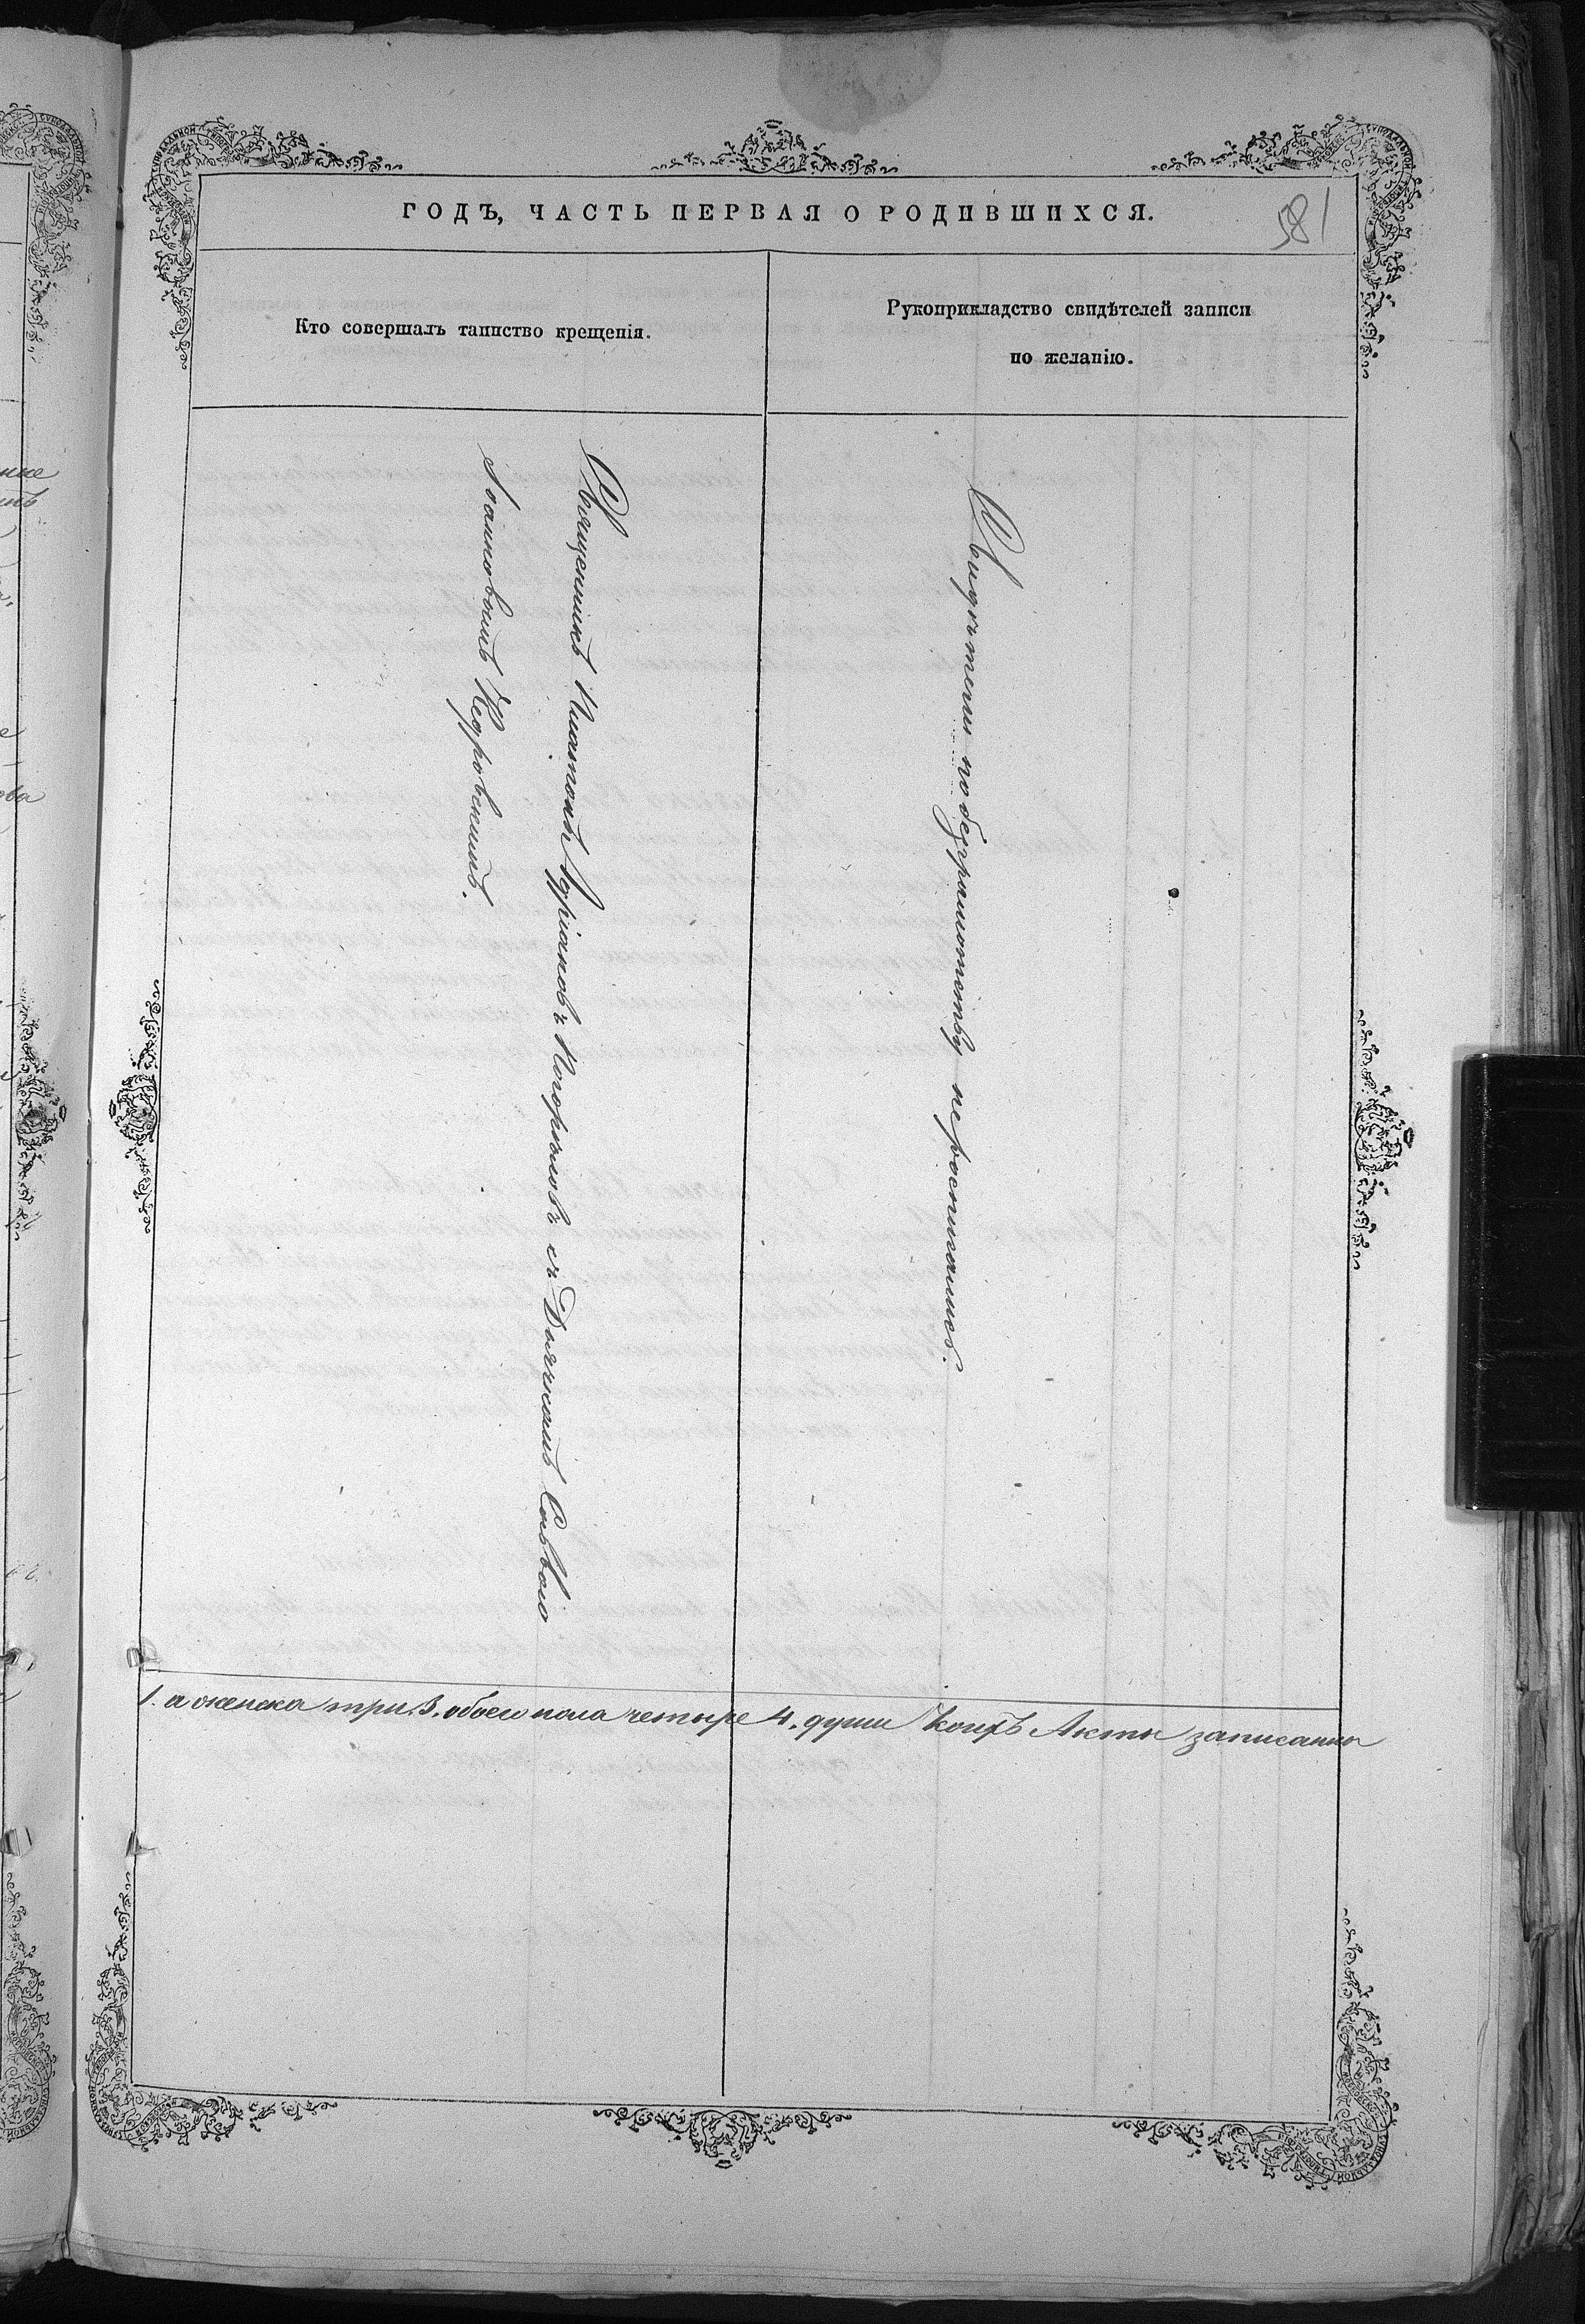 ГОДЪ, ЧАСТЬ ПЕРВАЯ О РОДИВШИХСЯ.
581
Кто совершалъ таинство крещенія.
Рукоприкладство свидѣтелей записи
по желанію.
Священникъ Платонъ Адріановъ Погориловъ съ Дьячкомъ Саввою
Іоанновымъ Кедровскимъ.
Свидѣтели по безграмотству не росписались.
1. а женска три 3. обоего пола четыре 4. души коихъ Акты записанны